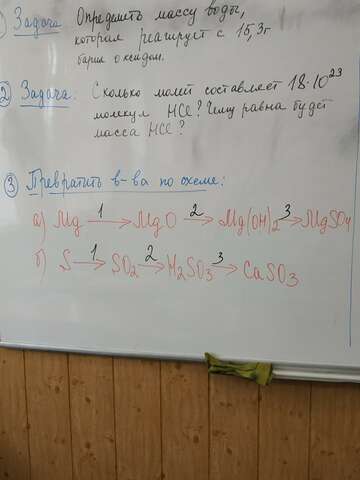 1) Задача Определить массу воды,
которая реагирует с 15,3г
бария оксидом.
2 Задача: Сколько молей составляет 18·10²³
молекул HCl? Чему равна будет
масса HCl?
3 Превратить в-ва по схеме:
а) Mg 1→ MgO 2→ Mg(OH)2 3→ MgSO4
б) S 1→ SO2 2→ H2SO3 3→ CaSO3